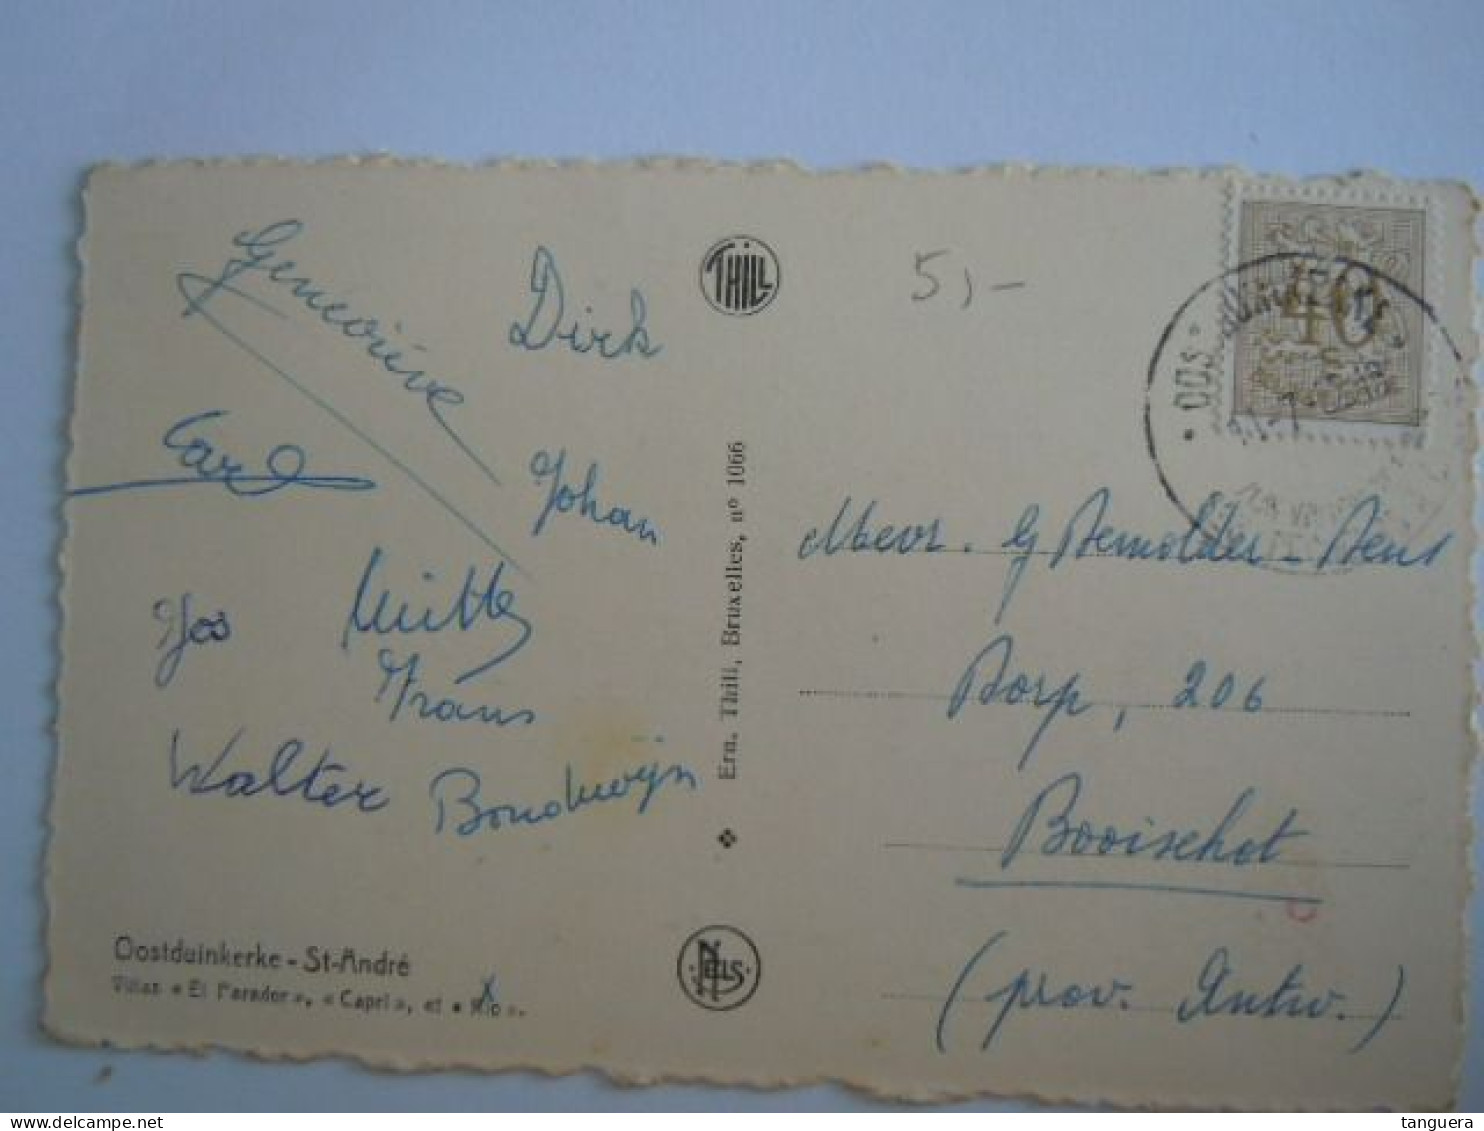 Geneviève
Dirk
Carl
Johan
Jos
Frans
Walter
Boudewijn
Oostduinkerke - St-André
Villas « El Parador », « Capri », et « Rio ».
THILL
Ern. Thill, Bruxelles, nº 1066
NELS
5,-
40
Mevr. G
Dorp, 206
Booischot
(prov. Antw.)
tanguera